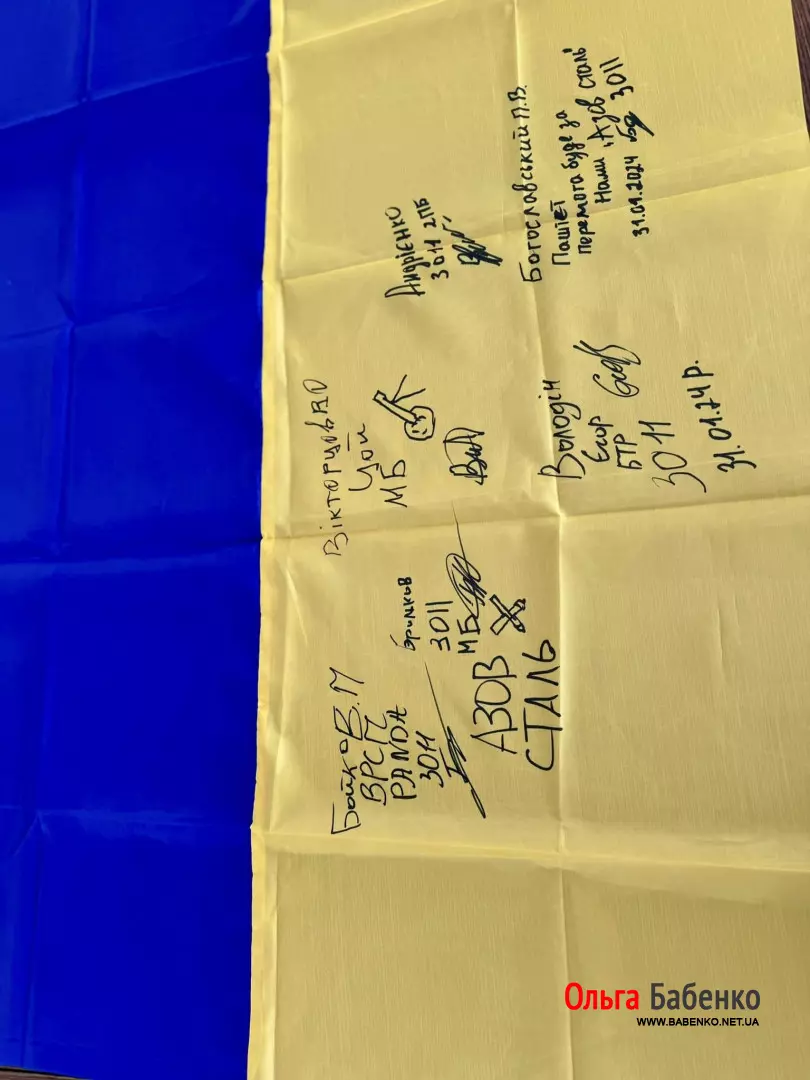 Бойко В.М
ВРСП
PANDA
3011
3011
МБ
АЗОВ
СТАЛЬ
Вікторцов ВО
Цой
МБ
Андрієнко
3011 2ПБ
Володін
Єгор
БТР
3011
31.01.24 р.
Богославський П.В.
Паштет
перемога буде за
Нами "Азов сталь"
31.01.2024 бр 3011
Ольга Бабенко
WWW.BABENKO.NET.UA